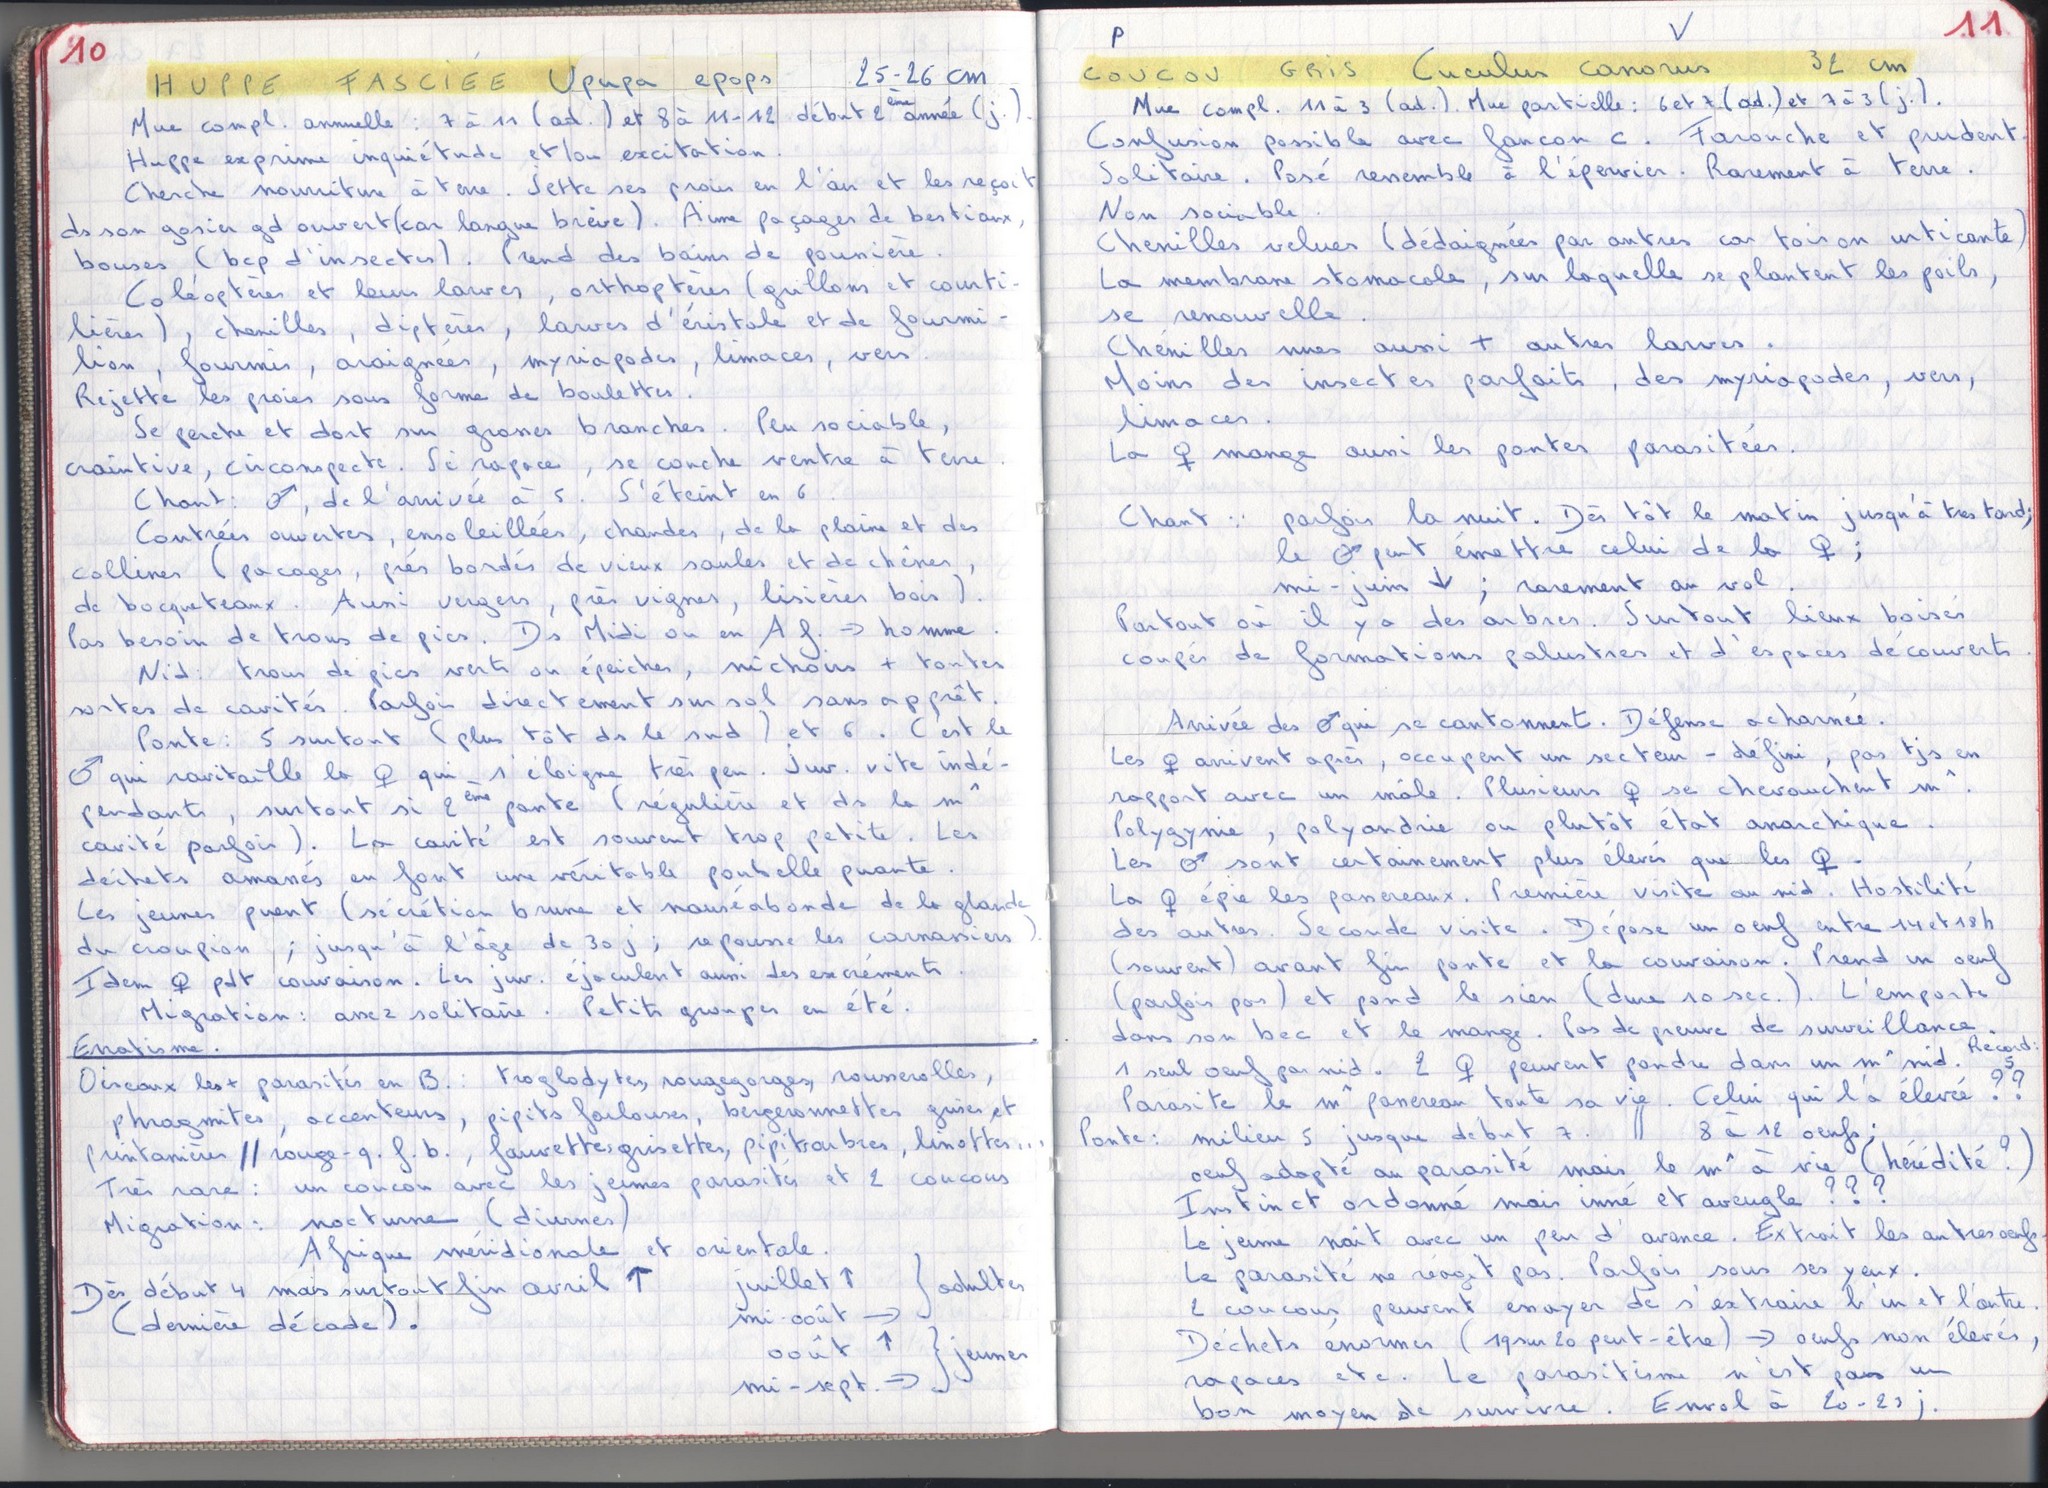 10
HUPPE FASCIÉE Upupa epops 25-26 cm
Mue compl. annuelle : 7 à 11 (ad.) et 8 à 11-12 début 2ème année (j.).
Huppe exprime inquiétude et/ou excitation.
Cherche nourriture à terre. Jette ses proies en l'air et les reçoit
ds son gosier gd ouvert (car langue brève). Aime paçages de bestiaux,
bouses (bcp d'insectes). Prend des bains de poussière.
Coléoptères et leurs larves, orthoptères (grillons et courti-
lières), chenilles, diptères, larves d'éristale et de fourmi-
lion, fourmis, araignées, myriapodes, limaces, vers.
Rejette les proies sous forme de boulettes.
Se perche et dort sur grosses branches. Peu sociable,
craintive, circonspecte. Si rapace, se couche ventre à terre.
Chant : ♂, de l'arrivée à 5. S'éteint en 6.
Contrées ouvertes, ensoleillées, chaudes, de la plaine et des
collines (pacages, prés bordés de vieux saules et de chênes,
de bocqueteaux. Aussi vergers, près vignes, lisières bois).
Pas besoin de trous de pics. Ds Midi ou en Af. → homme.
Nid : trous de pics verts ou épeiches, nichoirs + toutes
sortes de cavités. Parfois directement sur sol sans apprêt.
Ponte : 5 surtout (plus tôt ds le sud) et 6. C'est le
♂ qui ravitaille la ♀ qui s'éloigne très peu. Juv. vite indé-
pendants, surtout si 2ème ponte (régulière et ds la m^
cavité parfois). La cavité est souvent trop petite. Les
déchets amassés en font une véritable poubelle puante.
Les jeunes puent (sécrétion brune et nauséabonde de la glande
du croupion ; jusqu'à l'âge de 30 j ; repousse les carnassiers).
Idem ♀ pdt couvaison. Les juv. éjaculent aussi des excréments.
Migration : assez solitaire. Petits groupes en été.
Erratisme.
Oiseaux les + parasités en B. : troglodytes, rougegorges, rousserolles,
phragmites, accenteurs, pipits farlouses, bergeronnettes grises et
printanières // rouge-q. f. b., fauvettes grisettes, pipit arbres, linottes...
Très rare : un coucou avec les jeunes parasités et 2 coucous
Migration : nocturne (diurnes)
Afrique méridionale et orientale.
Dès début 4 mais surtout fin avril ↑
(dernière décade).
juillet ↑
mi-août → } adultes
août ↑
mi-sept. → } jeunes
P V 11
COUCOU GRIS Cuculus canorus 32 cm
Mue compl. 11 à 3 (ad.). Mue partielle : 6 et 7 (ad.) et 7 à 3 (j.).
Confusion possible avec faucon c. Farouche et prudent.
Solitaire. Posé ressemble à l'épervier. Rarement à terre.
Non sociable.
Chenilles velues (dédaignées par autres car toison urticante)
La membrane stomacale, sur laquelle se plantent les poils,
se renouvelle.
Chenilles nues aussi + autres larves.
Moins des insectes parfaits, des myriapodes, vers,
limaces.
La ♀ mange aussi les pontes parasitées.
Chant : parfois la nuit. Dès tôt le matin jusqu'à tres tard;
le ♂ peut émettre celui de la ♀ ;
mi-juin ↓ ; rarement au vol.
Partout où il y a des arbres. Surtout lieux boisés
coupés de formations palustres et d'espaces découverts.
Arrivée des ♂ qui se cantonnent. Défense acharnée.
Les ♀ arrivent après, occupent un secteur - défini, pas tjs en
rapport avec un mâle. Plusieurs ♀ se chevauchent m^.
Polygynie, polyandrie ou plutôt état anarchique.
Les ♂ sont certainement plus élevés que les ♀.
La ♀ épie les passereaux. Première visite au nid. Hostilité
des autres. Seconde visite. Dépose un oeuf entre 14 et 18h
(souvent) avant fin ponte et la couvaison. Prend un oeuf
(parfois pas) et pond le sien (dure 10 sec.). L'emporte
dans son bec et le mange. Pas de preuve de surveillance.
1 seul oeuf par nid. 2 ♀ peuvent pondre dans un m^ nid. Record : 5
Parasite le m^ passereau toute sa vie. Celui qui l'a élevée ??
Ponte : milieu 5 jusque début 7. // 8 à 12 oeufs ;
oeuf adapté au parasité mais le m^ à vie (hérédité ?)
Instinct ordonné mais inné et aveugle ???
Le jeune naît avec un peu d'avance. Extrait les autres oeufs.
Le parasité ne réagit pas. Parfois sous ses yeux.
2 coucous peuvent essayer de s'extraire l'un et l'autre.
Déchets énormes (19 sur 20 peut-être) → oeufs non élevés,
rapaces etc. Le parasitisme n'est pas un
bon moyen de survivre. Envol à 20-23 j.